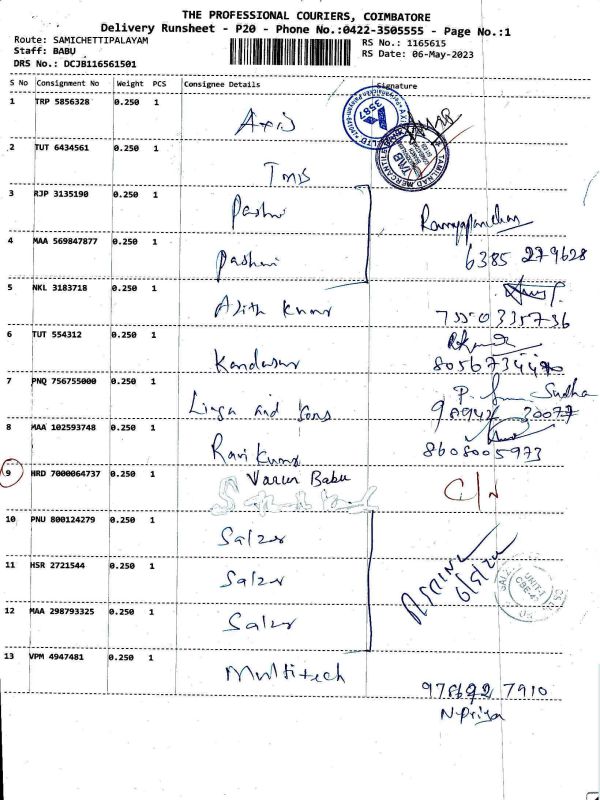 THE PROFESSIONAL COURIERS, COIMBATORE
Delivery Runsheet - P20 - Phone No.:0422-3505555 - Page No.:1
Route: SAMICHETTIPALAYAM
Staff: BABU
DRS No.: DCJB116561501
RS No.: 1165615
RS Date: 06-May-2023
S No Consignment No Weight PCS Consignee Details Signature
1 TRP 5856328 0.250 1 Axis
2 TUT 6434561 0.250 1 TMB
3 RJP 3135190 0.250 1
4 MAA 569847877 0.250 1
6385 279628
5 NKL 3183718 0.250 1 Ajith Kumar
6 TUT 554312 0.250 1
7 PNQ 756755000 0.250 1 Linga and Sons P. Sudha
98942 30077
8 MAA 102593748 0.250 1 Ravi Kumar 8608005973
9 HRD 7000064737 0.250 1 Varun Babu C/N
10 PNU 800124279 0.250 1 Salzer
11 HSR 2721544 0.250 1 Salzer
12 MAA 298793325 0.250 1 Salzer
13 VPM 4947481 0.250 1 Multitech
N. Priya